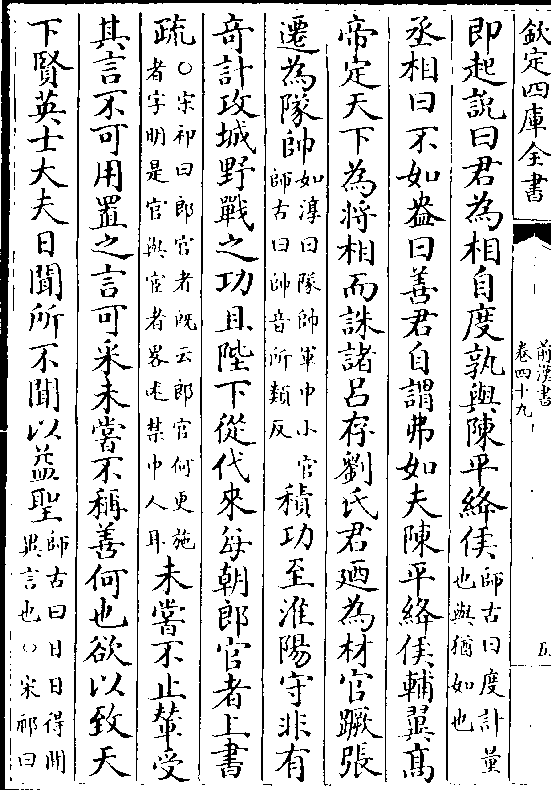 欽定四庫全書
前漢書
卷四十九
五
即起說曰君為相自度孰與陳平絳侯師古曰度計量
也與猶如也
丞相曰不如盎曰善君自謂弗如夫陳平絳侯輔翼髙
帝定天下為將相而誅諸吕存劉氏君廼為材官蹶張
遷為隊帥如淳曰隊帥軍中小官
師古曰帥音所類反積功至淮陽守非有
竒計攻城野戰之功且陛下從代來每朝郎官者上書
疏○宋祁曰郎官者既云郎官何更施
者字明是官與宦者畧此禁中人耳未嘗不止輦受
其言不可用置之言可采未嘗不稱善何也欲以致天
下賢英士大夫日聞所不聞以益聖師古曰日日得聞
異言也○宋祁曰